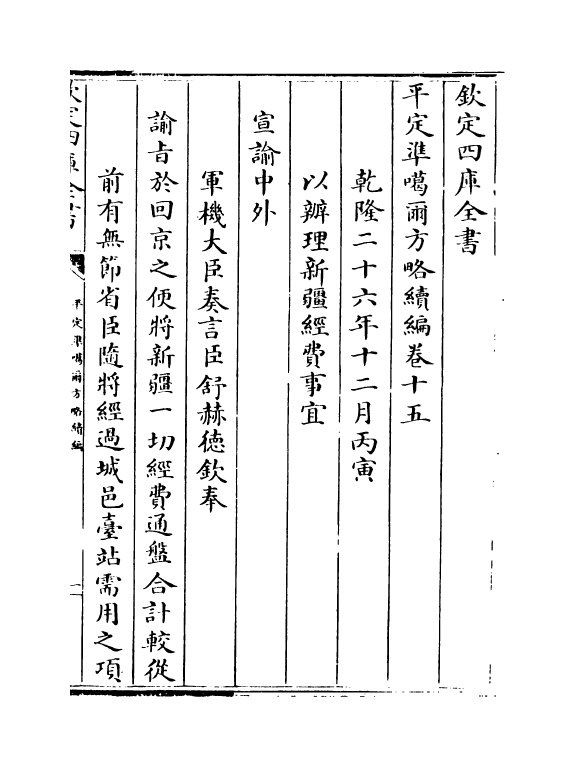 欽定四庫全書
平定準噶爾方略續編卷十五
乾隆二十六年十二月丙寅
以辦理新疆經費事宜
宣諭中外
軍機大臣奏言臣舒赫德欽奉
諭旨於回京之便將新疆一切經費通盤合計較從
前有無節省臣隨將經過城邑臺站需用之項
欽定四庫全書
平定準噶爾方略續編
一